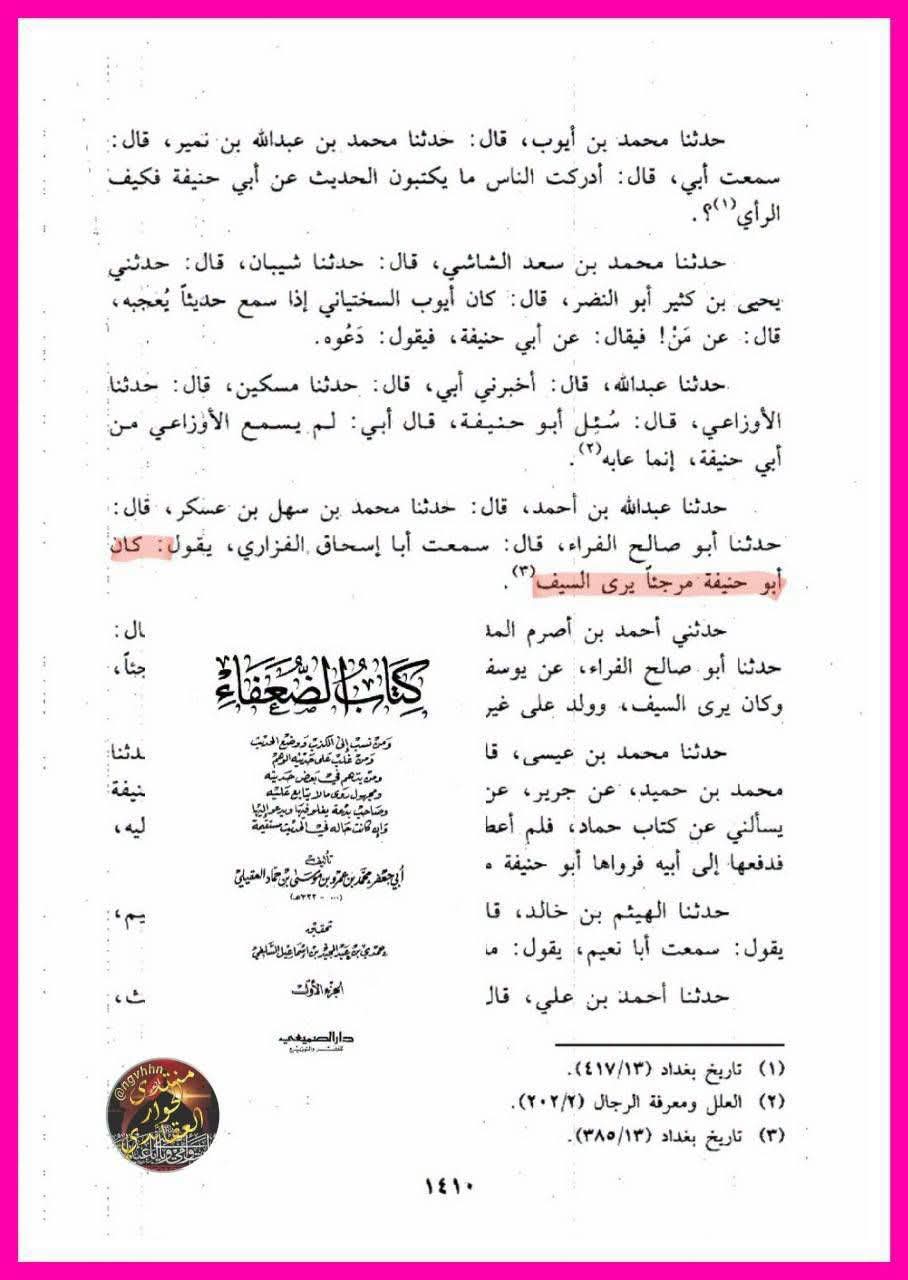 حدثنا محمد بن أيوب، قال: حدثنا محمد بن عبدالله بن نمير، قال:
سمعت أبي، قال: أدركت الناس ما يكتبون الحديث عن أبي حنيفة فكيف
الرأي(١)؟.
حدثنا محمد بن سعد الشاشي، قال: حدثنا شيبان، قال: حدثني
يحيى بن كثير أبو النضر، قال: كان أيوب السختياني إذا سمع حديثاً يُعجبه،
قال: عن مَنْ! فيقال: عن أبي حنيفة، فيقول: دَعُوه.
حدثنا عبدالله، قال: أخبرني أبي، قال: حدثنا مسكين، قال: حدثنا
الأوزاعي، قال: سُئِل أبو حنيفة، قال أبي: لم يسمع الأوزاعي من
أبي حنيفة، إنما عابه(٢).
حدثنا عبدالله بن أحمد، قال: حدثنا محمد بن سهل بن عسكر، قال:
حدثنا أبو صالح الفراء، قال: سمعت أبا إسحاق الفزاري، يقول: كان
أبو حنيفة مرجئاً يرى السيف(٣).
حدثني أحمد بن أصرم المد ال:
حدثنا أبو صالح الفراء، عن يوسف جئاً،
وكان يرى السيف، وولد على غير
حدثنا محمد بن عيسى، قا حدثنا
محمد بن حميد، عن جرير، عن نيفة
يسألني عن كتاب حماد، فلم أعط ليه،
فدفعها إلى أبيه فرواها أبو حنيفة م
حدثنا الهيثم بن خالد، قا يم،
يقول: سمعت أبا نعيم، يقول: م
حدثنا أحمد بن علي، قال ث،
كتاب الضعفاء
ومن نسب إلى الكذب ووضع الحديث
ومن غلب على حديثه الوهم
ومن يتهم في بعض حديثه
ومجهول روى ما لا يتابع عليه
وصاحب بدعة يغلو فيها ويدعو إليها
وإن كانت حاله في الحديث مستقيمة
تأليف
أبي جعفر محمد بن عمرو بن موسى بن حماد العقيلي
(٠٠٠ - ٣٢٢هـ)
تحقيق
حمدي بن عبد المجيد بن إسماعيل السلفي
الجزء الأول
دار الصميعي
للنشر والتوزيع
(١) تاريخ بغداد (٤١٧/١٣).
(٢) العلل ومعرفة الرجال (٢٠٢/٢).
(٣) تاريخ بغداد (٣٨٥/١٣).
١٤١٠
@ngvhhn
منتدى
الحوار
العقائدي